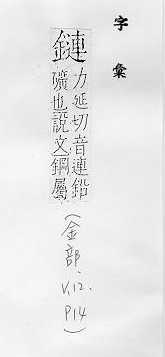 字彙
鏈
力延切音連鉛
礦也說文銅屬
(金部.
V.12.
P.14)